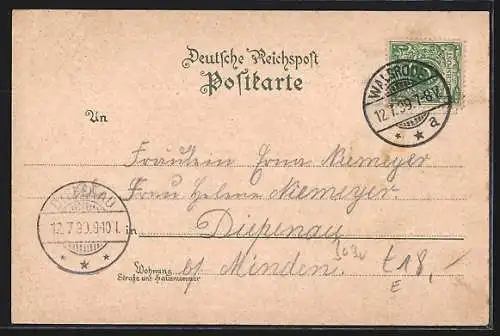 Deutsche Reichspost
Postkarte
WALSRODE
12.7.99.7-8V.
a
An
Fräulein Erna Niemeyer
Frau Helene Niemeyer
DIEPENAU
12.7.99.9-10
in Diepenau
Wohnung
Straße und Hausnummer
bf Minden.
£18,-
E